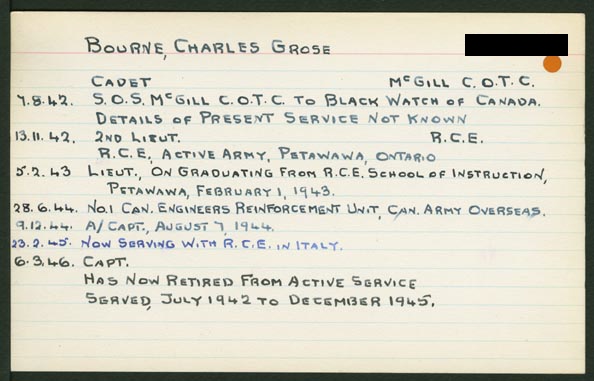 BOURNE, CHARLES GROSE
CADET McGILL C.O.T.C.
7.8.42. S.O.S. McGILL C.O.T.C. TO BLACK WATCH OF CANADA.
DETAILS OF PRESENT SERVICE NOT KNOWN
13.11.42. 2ND LIEUT. R.C.E.
R.C.E., ACTIVE ARMY, PETAWAWA, ONTARIO
5.2.43 LIEUT., ON GRADUATING FROM R.C.E. SCHOOL OF INSTRUCTION,
PETAWAWA, FEBRUARY 1, 1943.
28.6.44. NO.1 CAN. ENGINEERS REINFORCEMENT UNIT, CAN. ARMY OVERSEAS.
9.12.44. A/CAPT., AUGUST 7, 1944.
23.2.45. NOW SERVING WITH R.C.E. IN ITALY.
6.3.46. CAPT.
HAS NOW RETIRED FROM ACTIVE SERVICE
SERVED, JULY 1942 TO DECEMBER 1945.